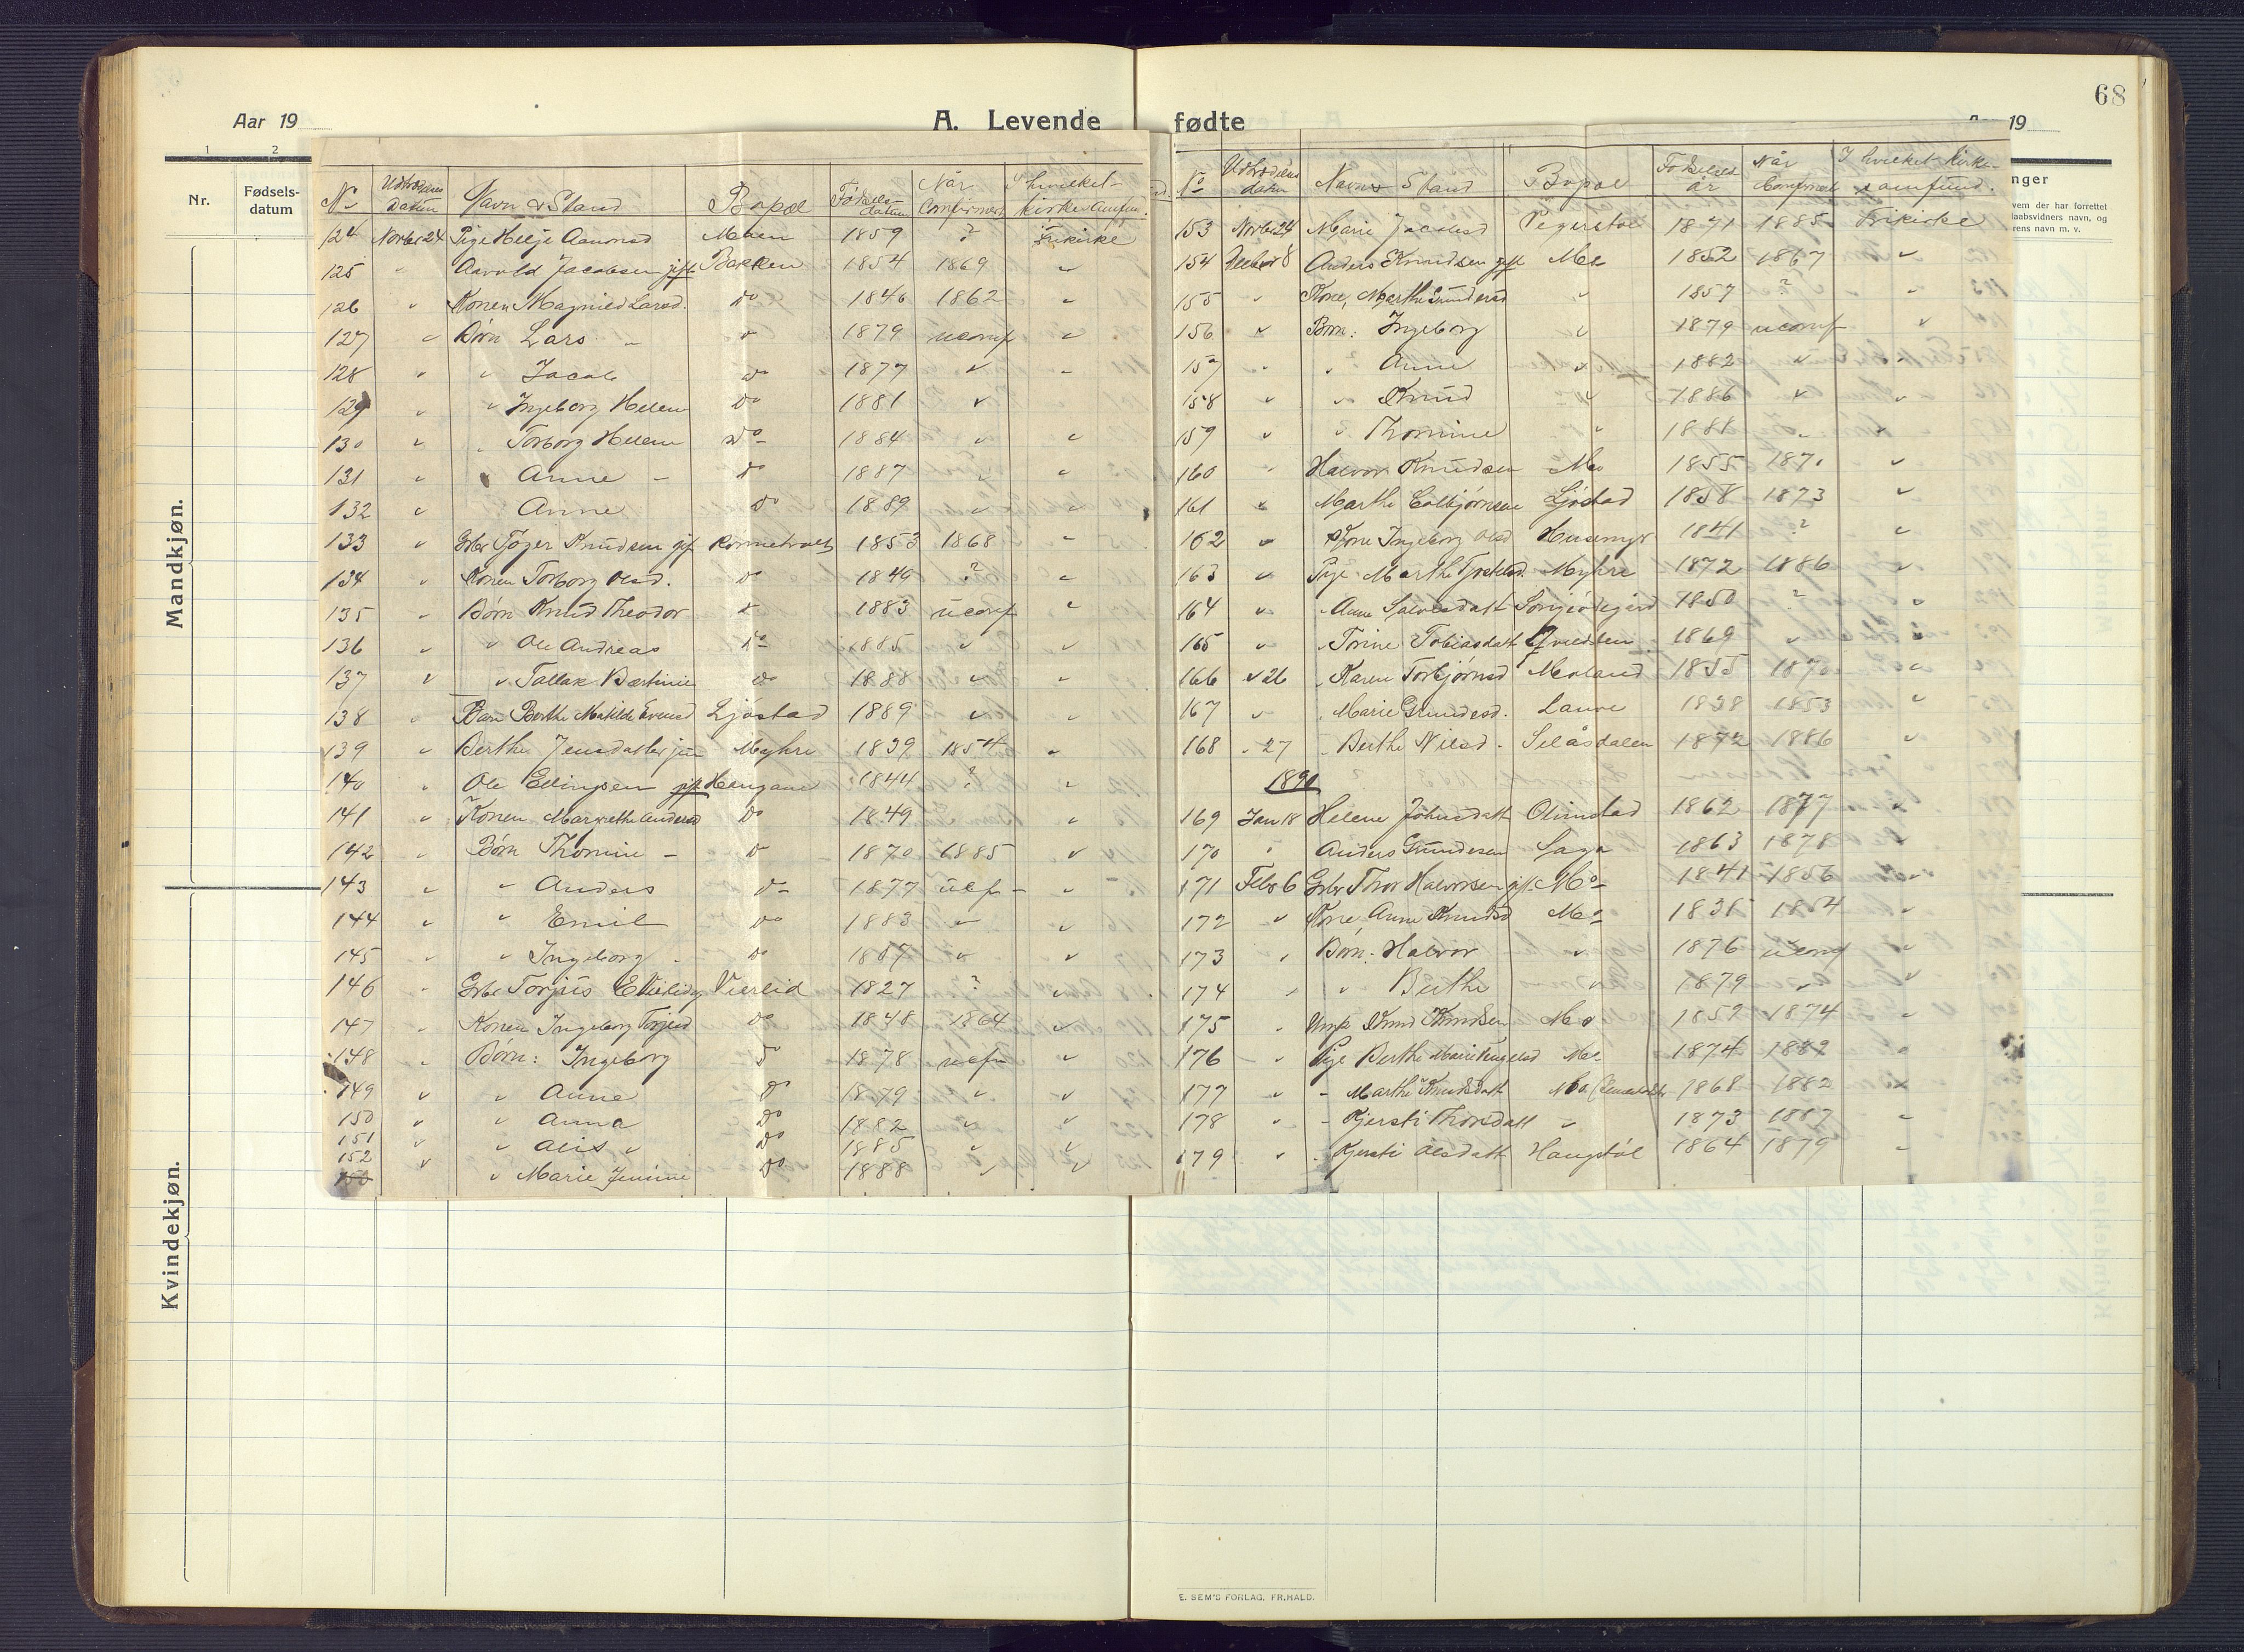 68
Aar 19
A. Levende
fødte
19
1
2
Nr.
Fødsels-
datum
Mandkjøn.
Kvindekjøn.
nger
vem der har forrettet
laabsvidners navn, og
rens navn m. v.
No Udtrædelses Datum Navn & Stand Bopæl Fødsels datum Når Confirmert I hvilket kirkesamfun.
124 Novber 24 Pige Helje Aanonsd Moen 1859 ? Frikirke
125 " Aavold Jacobsen gift Bakken 1854 1869 "
126 " Konen Magnild Larsd. Do 1846 1862 "
127 " Børn Lars " " 1879 uconf "
128 " " Jacob Do 1877 " "
129 " " Ingeborg Helene Do 1881 "
130 " " Torborg Helene Do 1884 " "
131 " " Anne - Do 1887 " "
132 " Anne Do 1889 " "
133 " Gbr Tøger Knudsen gift 1853 1868 "
134 " Konen Torborg Olsd. Do 1849 ? "
135 " Børn Knud Theodor Do 1883 uconf "
136 " " Ole Andreas Do 1885 " "
137 " " Tallak Bertinius Do 1888 " "
138 " Barn Berthe Matilde Evensd Ljøstad 1889 " "
139 " Berthe Jensdatter Myhre 1839 1854 "
140 " Ole Ellingsen gift Haugane 1844 ? "
141 " Konen Margrethe Andersd Do 1849 "
142 " Børn Thomine - Do 1870 1885 "
143 " " Anders Do 1877 ucf - "
144 " " Emil Do 1883 " "
145 " " Ingeborg Do 1887 " "
146 " Gbr Torjus Vierlid 1827 ? "
147 " Konen Ingeborg Torjusd Do 1848 1864 "
148 " Børn: Ingeborg Do 1878 ucfn "
149 " " Anne Do 1879 " "
150 " " Anna Do 1882 " "
151 " " Alis " Do 1885 " "
152 " " Marie Jensine Do 1888 " "
No Udtrædelses datum Navn & Stand Bopæl Fødsels år Når Confirmert I hvilket Kirkesamfund.
153 Novbr 24 Marie Jacobsd 1871 1885 Frikirke
154 Decbr 8 Anders Knudsen gift Mo 1852 1867 "
155 " Kone, Marthe Gundersd " 1857 ? "
156 " Børn: Ingeborg " 1879 uconf "
157 " " Anne " 1882 " "
158 " " Knud " 1886 " "
159 " " Thomine " 1888 " "
160 " Halvor Knudsen Mo 1855 1870 "
161 " Marthe Ljøstad 1858 1873 "
162 " Kone Ingeborg Olsd Husemyr 1841 ? "
163 " Pige Marthe Myhre 1872 1886 "
164 " " Anne Salvesdatt 1850 ? "
165 " " Torine Tobiasdatt 1869 " "
166 " 26 " Karen Torbjørnsd Moland 1855 1870 "
167 " " Marie Gundersd. Lauve 1838 1853 "
168 " 27 " Berthe Nilsd. Selåsdalen 1872 1886 "
1890
169 Jan 18 Helene Johnsdatt Olimstad 1862 1877 "
170 " Anders Gundersen Saga 1863 1878 "
171 Febr 6 Gbr Thor Halvorsen gift Mo 1841 1856 "
172 " Kone Anne Knudsd Mo 1838 1854 "
173 " Børn: Halvor " 1876 uconf "
174 " " Berthe " 1879 " "
175 " Ungk Knud Knudsen Mo 1859 1874 "
176 " Pige Berthe Marie Mo 1874 1889 "
177 " - Marthe Knudsdatt Mo 1868 1882 "
178 " - Kjersti Thorsdatt " 1873 1887 "
179 " " Kjersti Olsdatt Haugstøl 1864 1879 "
E. SEM'S FORLAG, FR.HALD.